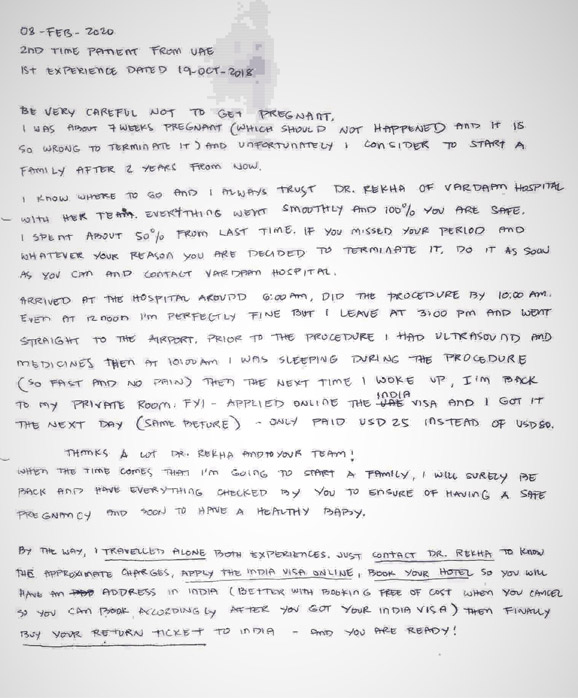 08-FEB-2020
2ND TIME PATIENT FROM UAE
1ST EXPERIENCE DATED 19-OCT-2018
BE VERY CAREFUL NOT TO GET PREGNANT.
I WAS ABOUT 7 WEEKS PREGNANT (WHICH SHOULD NOT HAPPENED AND IT IS
SO WRONG TO TERMINATE IT) AND UNFORTUNATELY I CONSIDER TO START A
FAMILY AFTER 2 YEARS FROM NOW.
I KNOW WHERE TO GO AND I ALWAYS TRUST DR. REKHA OF VARDAAN HOSPITAL
WITH HER TEAM. EVERYTHING WENT SMOOTHLY AND 100% YOU ARE SAFE.
I SPENT ABOUT 50% FROM LAST TIME. IF YOU MISSED YOUR PERIOD AND
WHATEVER YOUR REASON YOU ARE DECIDED TO TERMINATE IT, DO IT AS SOON
AS YOU CAN AND CONTACT VARDAAN HOSPITAL.
ARRIVED AT THE HOSPITAL AROUND 6:00 AM, DID THE PROCEDURE BY 10:00 AM.
EVEN AT 12 NOON I'M PERFECTLY FINE BUT I LEAVE AT 3:00 PM AND WENT
STRAIGHT TO THE AIRPORT. PRIOR TO THE PROCEDURE I HAD ULTRASOUND AND
MEDICINES THEN AT 10:00 AM I WAS SLEEPING DURING THE PROCEDURE
(SO FAST AND NO PAIN) THEN THE NEXT TIME I WOKE UP, I'M BACK
TO MY PRIVATE ROOM. FYI - APPLIED ONLINE THE UAE INDIA VISA AND I GOT IT
THE NEXT DAY (SAME BEFORE) - ONLY PAID USD 25 INSTEAD OF USD80.
THANKS A LOT DR. REKHA AND TO YOUR TEAM!
WHEN THE TIME COMES THAT I'M GOING TO START A FAMILY, I WILL SURELY BE
BACK AND HAVE EVERYTHING CHECKED BY YOU TO ENSURE OF HAVING A SAFE
PREGNANCY AND SOON TO HAVE A HEALTHY BABY.
BY THE WAY, I TRAVELLED ALONE BOTH EXPERIENCES. JUST CONTACT DR. REKHA TO KNOW
THE APPROXIMATE CHARGES, APPLY THE INDIA VISA ONLINE, BOOK YOUR HOTEL SO YOU WILL
HAVE AN ADDRESS IN INDIA (BETTER WITH BOOKING FREE OF COST WHEN YOU CANCEL
SO YOU CAN BOOK ACCORDINGLY AFTER YOU GOT YOUR INDIA VISA) THEN FINALLY
BUY YOUR RETURN TICKET TO INDIA - AND YOU ARE READY!